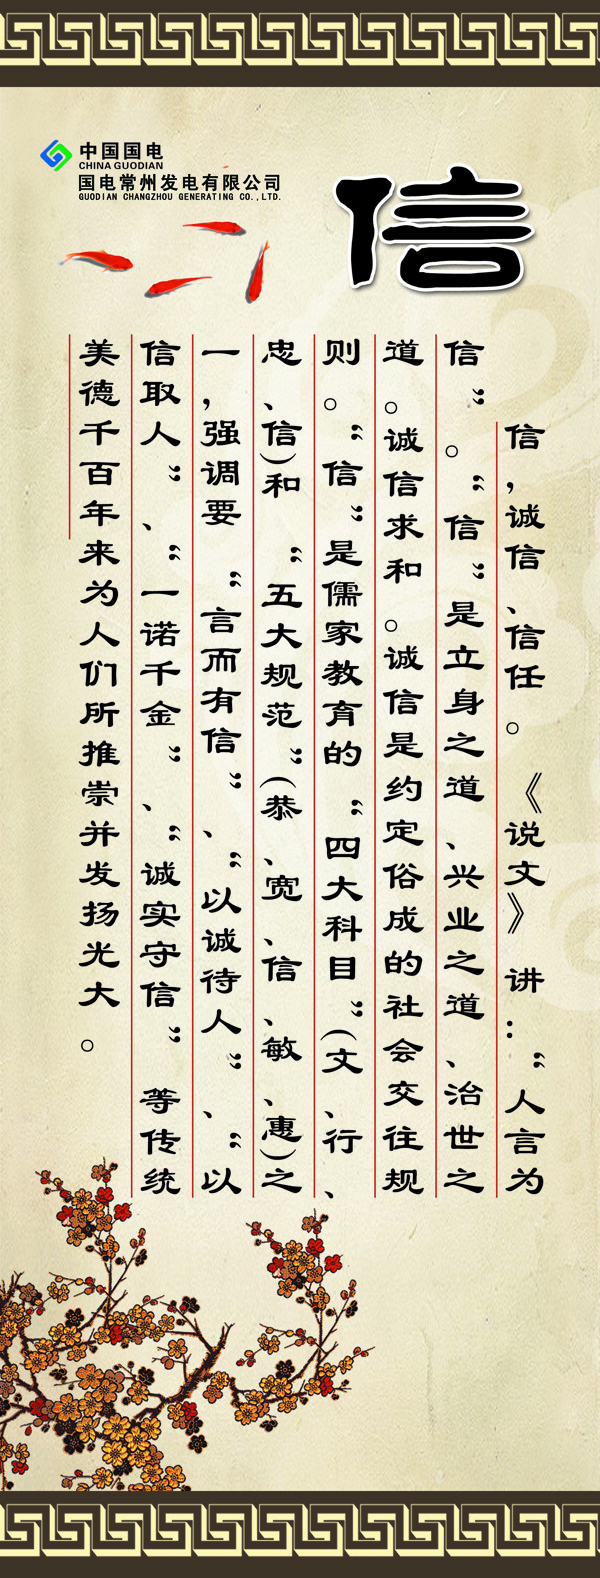 中国国电
CHINA GUODIAN
国电常州发电有限公司
GUODIAN CHANGZHOU GENERATING CO.,LTD.
信
信,诚信、信任。《说文》讲:“人言为
信”。“信”是立身之道、兴业之道、治世之
道。诚信求和。诚信是约定俗成的社会交往规
则。“信”是儒家教育的“四大科目”(文、行、
忠、信)和“五大规范”(恭、宽、信、敏、惠)之
一,强调要“言而有信”、“以诚待人”、“以
信取人”、“一诺千金”、“诚实守信”等传统
美德千百年来为人们所推崇并发扬光大。